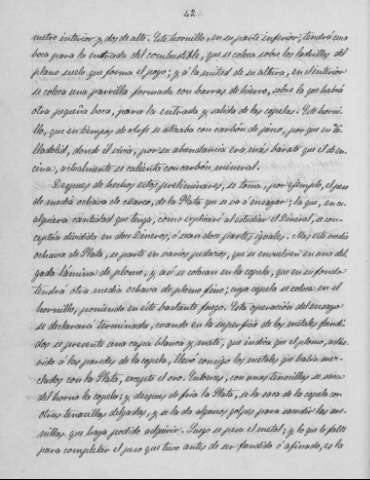 42
metro interior y dos de alto. Este hornillo, en su parte inferior, tendrá una
boca para la entrada del combustible, que se coloca sobre los ladrillos del
plano suelo que forma el poyo; y á la mitad de su altura, en el interior
se coloca una parrilla formada con barras de hierro, sobre la que habrá
otra pequeña boca, para la entrada y salida de las copelas. Este horni-
llo, que en tiempos de Arfe se atizaba con carbón de pino, por que en Va-
lladolid, donde él vivía, por su abundancia era más barato que el de en-
cina, actualmente se calienta con carbón mineral.
Despues de hechos estos preliminares, se toma, por ejemplo, el peso
de media ochava de marco, de la Plata que se va á ensayar; la que, en
cualquiera cantidad que tenga, como explicaré al estudiar el Dineral, se con-
ceptúa dividida en doce Dineros, ó sean doce partes iguales. Esta media
ochava de Plata, se parte en varios pedacitos, que se envuelven en una del-
gada lámina de plomo, y así se colocan en la copela, que en su fondo
tendrá otra media ochava de plomo fino; cuya copela se coloca en el
hornillo, poniendo en éste bastante fuego. Esta operación del ensaye
se declarará terminada, cuando en la superficie de los metales fundi-
dos se presente una capa blanca y mate, que indica que el plomo, adhe-
rido á las paredes de la copela, llevó consigo los metales que había mez-
clados con la Plata, excepto el oro. Entonces, con unas tenacillas se saca
del horno la copela; y despues de fría la Plata, se la saca de la copela con
otras tenacillas delgadas, y se la da algunos golpes para sacudir las se-
millas que haya podido adquirir. Luego se pesa el metal; y lo que le falte
para completar el peso que tuvo antes de ser fundido ó afinado, es la